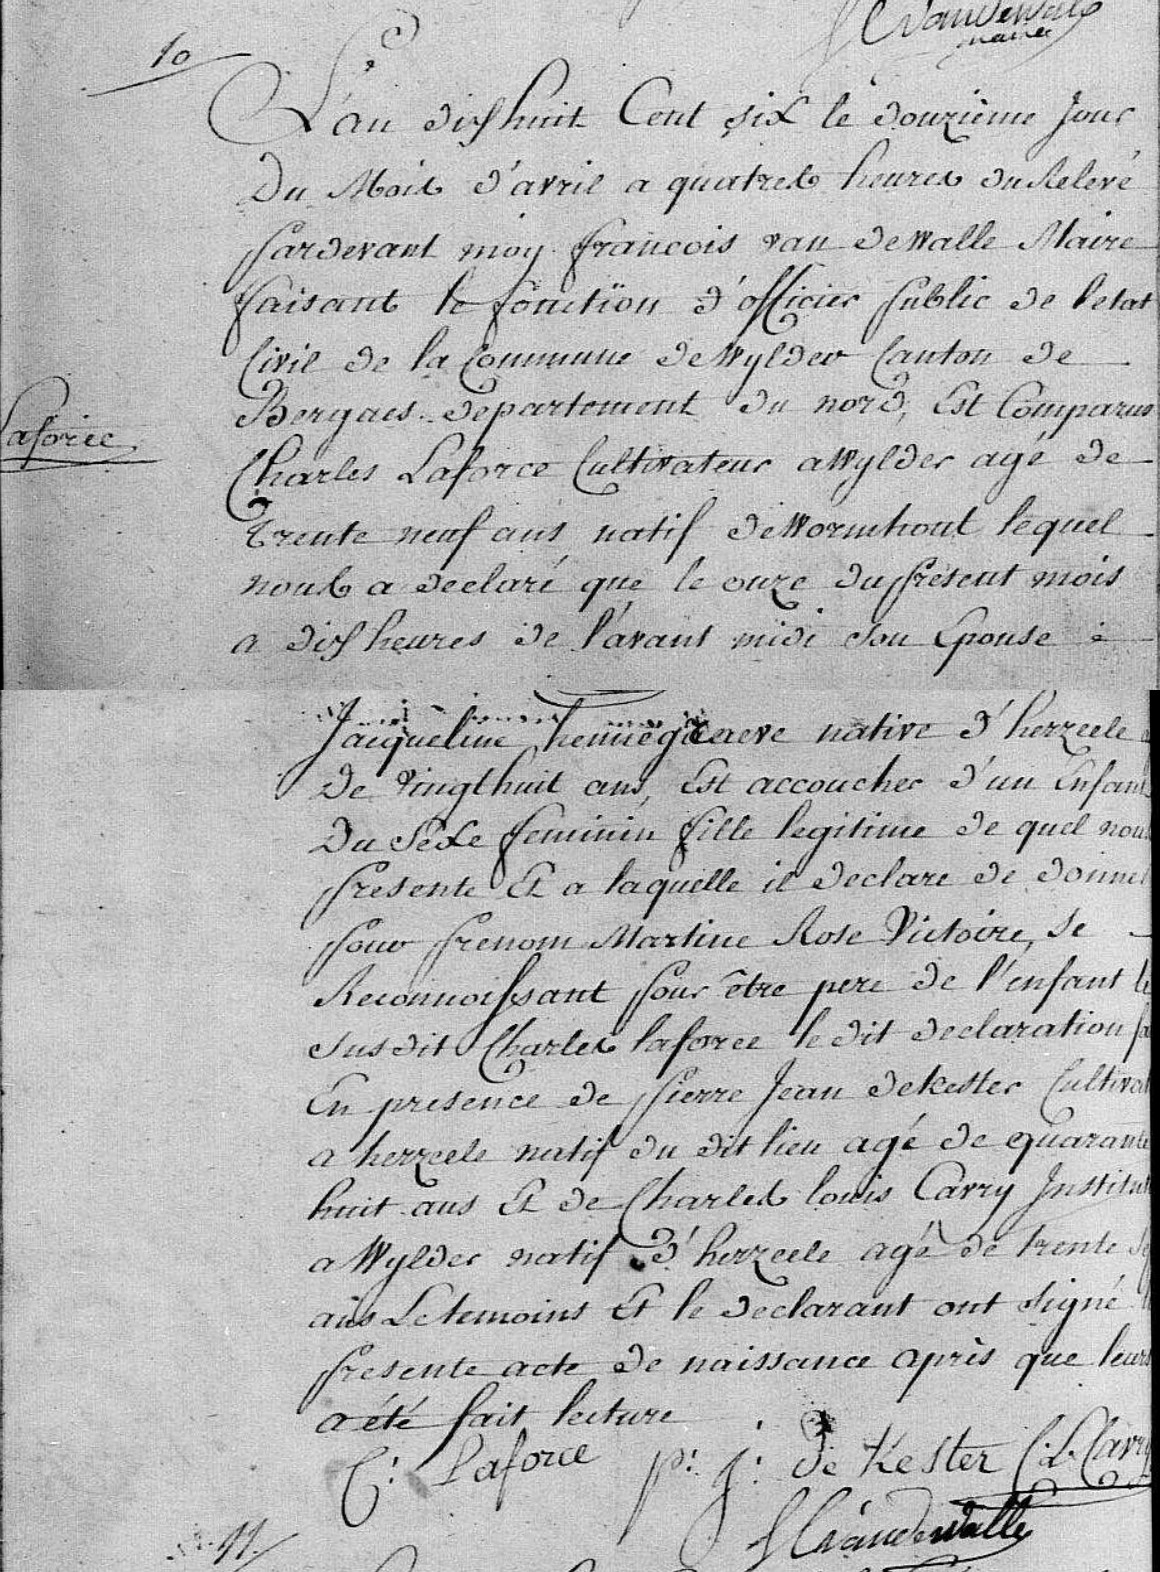 Vandewalle
maire
10
L'an dix huit Cent six le douzieme Jour
Du Mois d'avril a quatres heures du Relevé
pardevant moy francois van de walle Maire
faisant le fonction d'officier public de l'etat
Civil de la Commune de Wylder Canton de
Bergues departement du nord, Est Comparus
Laforce
Charles Laforce Cultivateur a Wylder agé de
trente neuf ans natif de Wormhout lequel
nous a declaré que le onze du present mois
a dix heures de l'avant midi son Epouse
Jacqueline hennegraeve native d'herzeele
de vingt huit ans, Est accoucher d'un Enfant
Du Sexe feminin fille legitime de quel nous
presente Et a laquelle il declare de donner
pour prenom Martine Rose Victoire, se
Reconnoissant pour être pere de l'enfant le
susdit Charles laforce le dit declaration
En presence de pierre Jean deKester Cultivat
a herzeele natif du dit lieu agé de quarante
huit ans Et de Charles louis Carry Institut
a Wylder natif d'herzeele agé de trente
ans Le temoins Et le declarant ont signé
presente acte de naissance après que leurs
a été fait lecture
C: Laforce p: j: de Kester C:L: Carry
Vandewalle
11